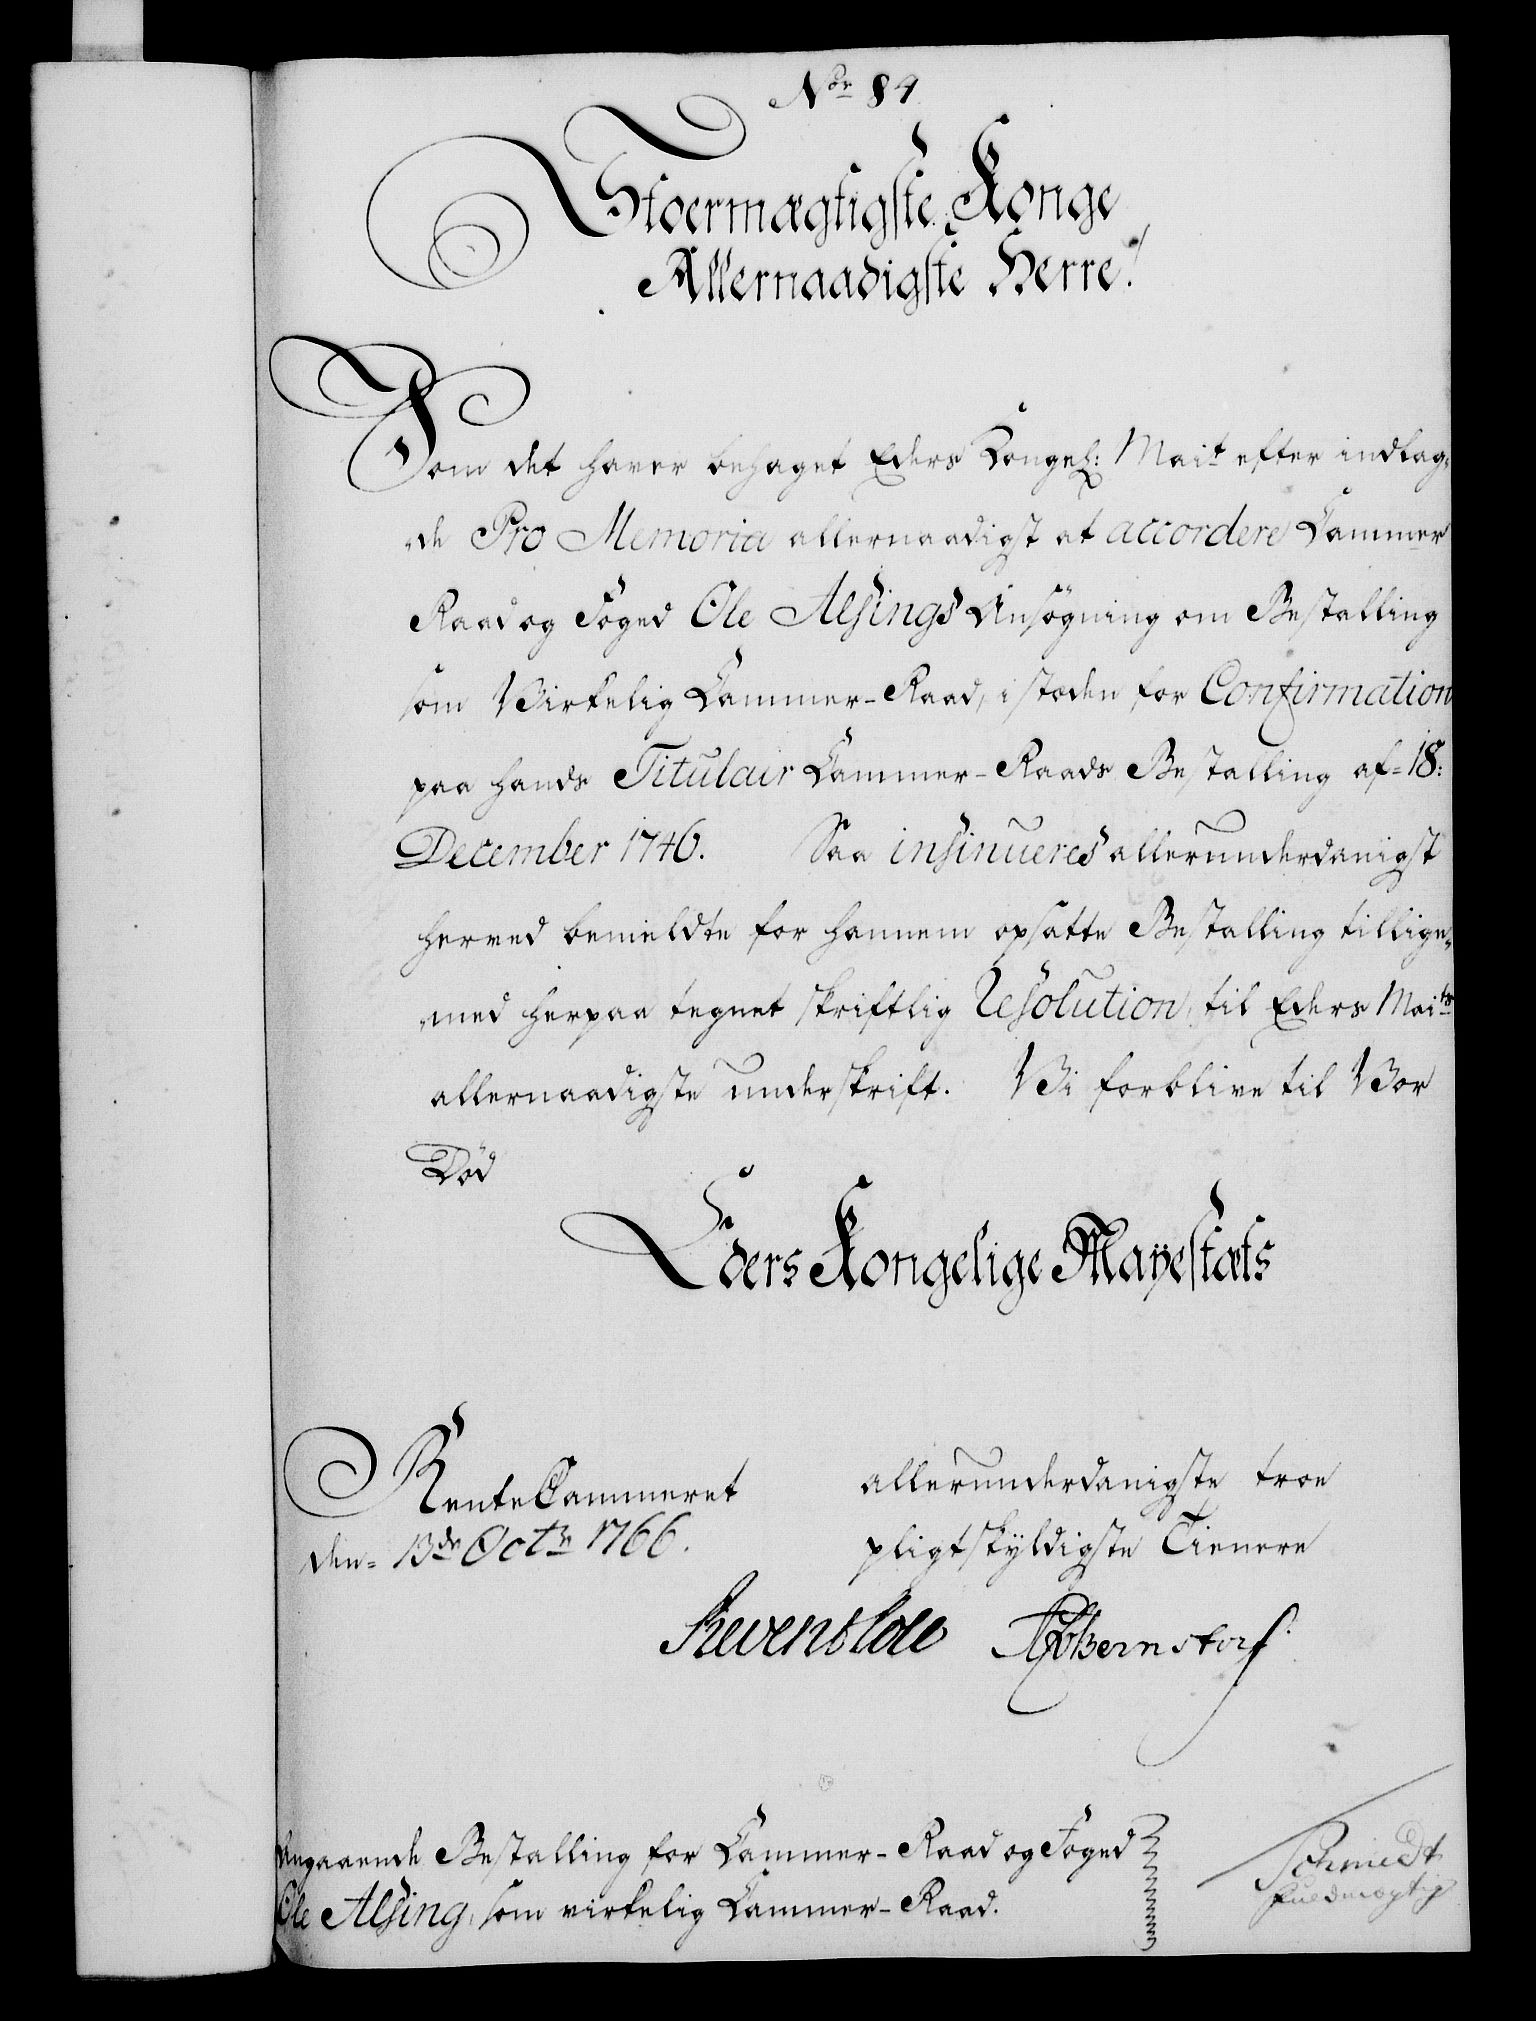 No 84
Stoermægtigste Konge
Allernaadigste Herre!
Som det haver behaget Eders Kongel: Mait efter indlag-
de Pro Memoria allernaadigst at accordere Cammer
Raad og Foged Ole Alsings Ansøgning om Bestalling
som Virkelig Cammer-Raad, i stæden for Confirmation
paa hands Titulair Cammer-Raads Bestalling af 18:
December 1746. Saa insinueres allerunderdanigst
herved bemeldte for hannem opsatte Bestalling tillige-
med herpaa tegnet skriftlig Resolution, til Eders Maits
allernaadigste underskrift. Vi forblive til Vor
Død
Eders Kongelige Mayestæts
RenteCammeret
den 13de Octr 1766.
allerunderdanigste troe
pligtskyldigste Tienere
Reventlow Bernstorf
Angaaende Bestalling for Cammer-Raad og Foged
Ole Alsing, som virkelig Cammer-Raad.
Schmidt
Fuldmægtig